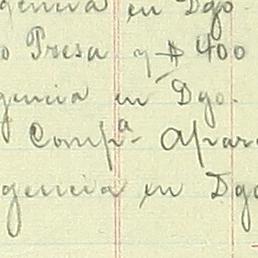 gencia en Dgo.
o Presa y $ 400
gencia en Dgo.
Compª. Apar
gencia en Dgo